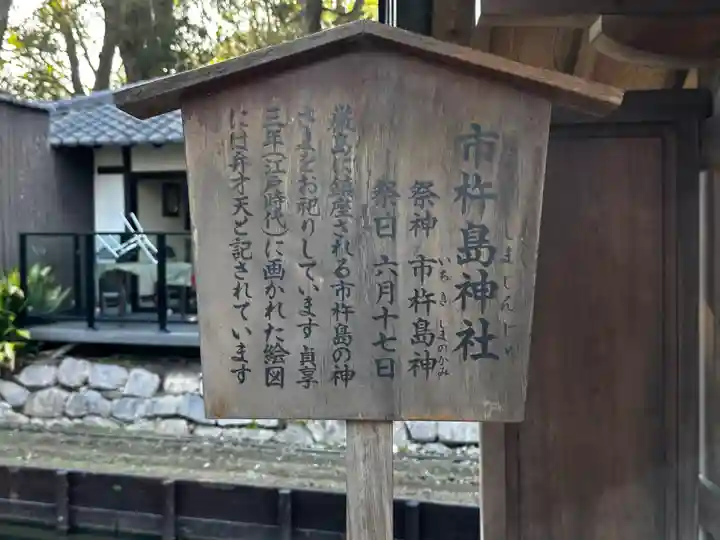 市杵島神社
しまじんじゃ
祭神 市杵島神
いちき しまのかみ
祭日 六月十七日
厳島に鎮座される市杵島の神
さまをお祀りしています 貞享
三年(江戸時代)に画かれた絵図
には弁才天と記されています